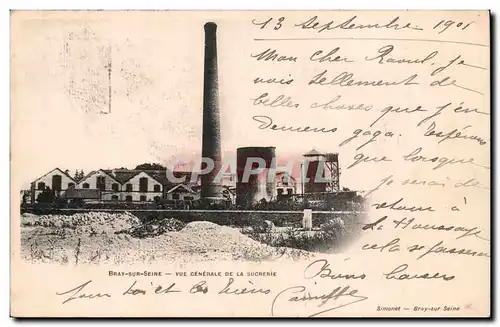 13 Septembre 1901
Mon cher Raoul, je
vois tellement de
belles choses que j'en
deviens gaga. Espérons
que lorsque
je serai de
retour à
la Houssaye
cela se passera
Bons baisers
pour toi et les tiens
CPARAMA
BRAY-SUR-SEINE — VUE GÉNÉRALE DE LA SUCRERIE
Simonet — Bray-sur Seine